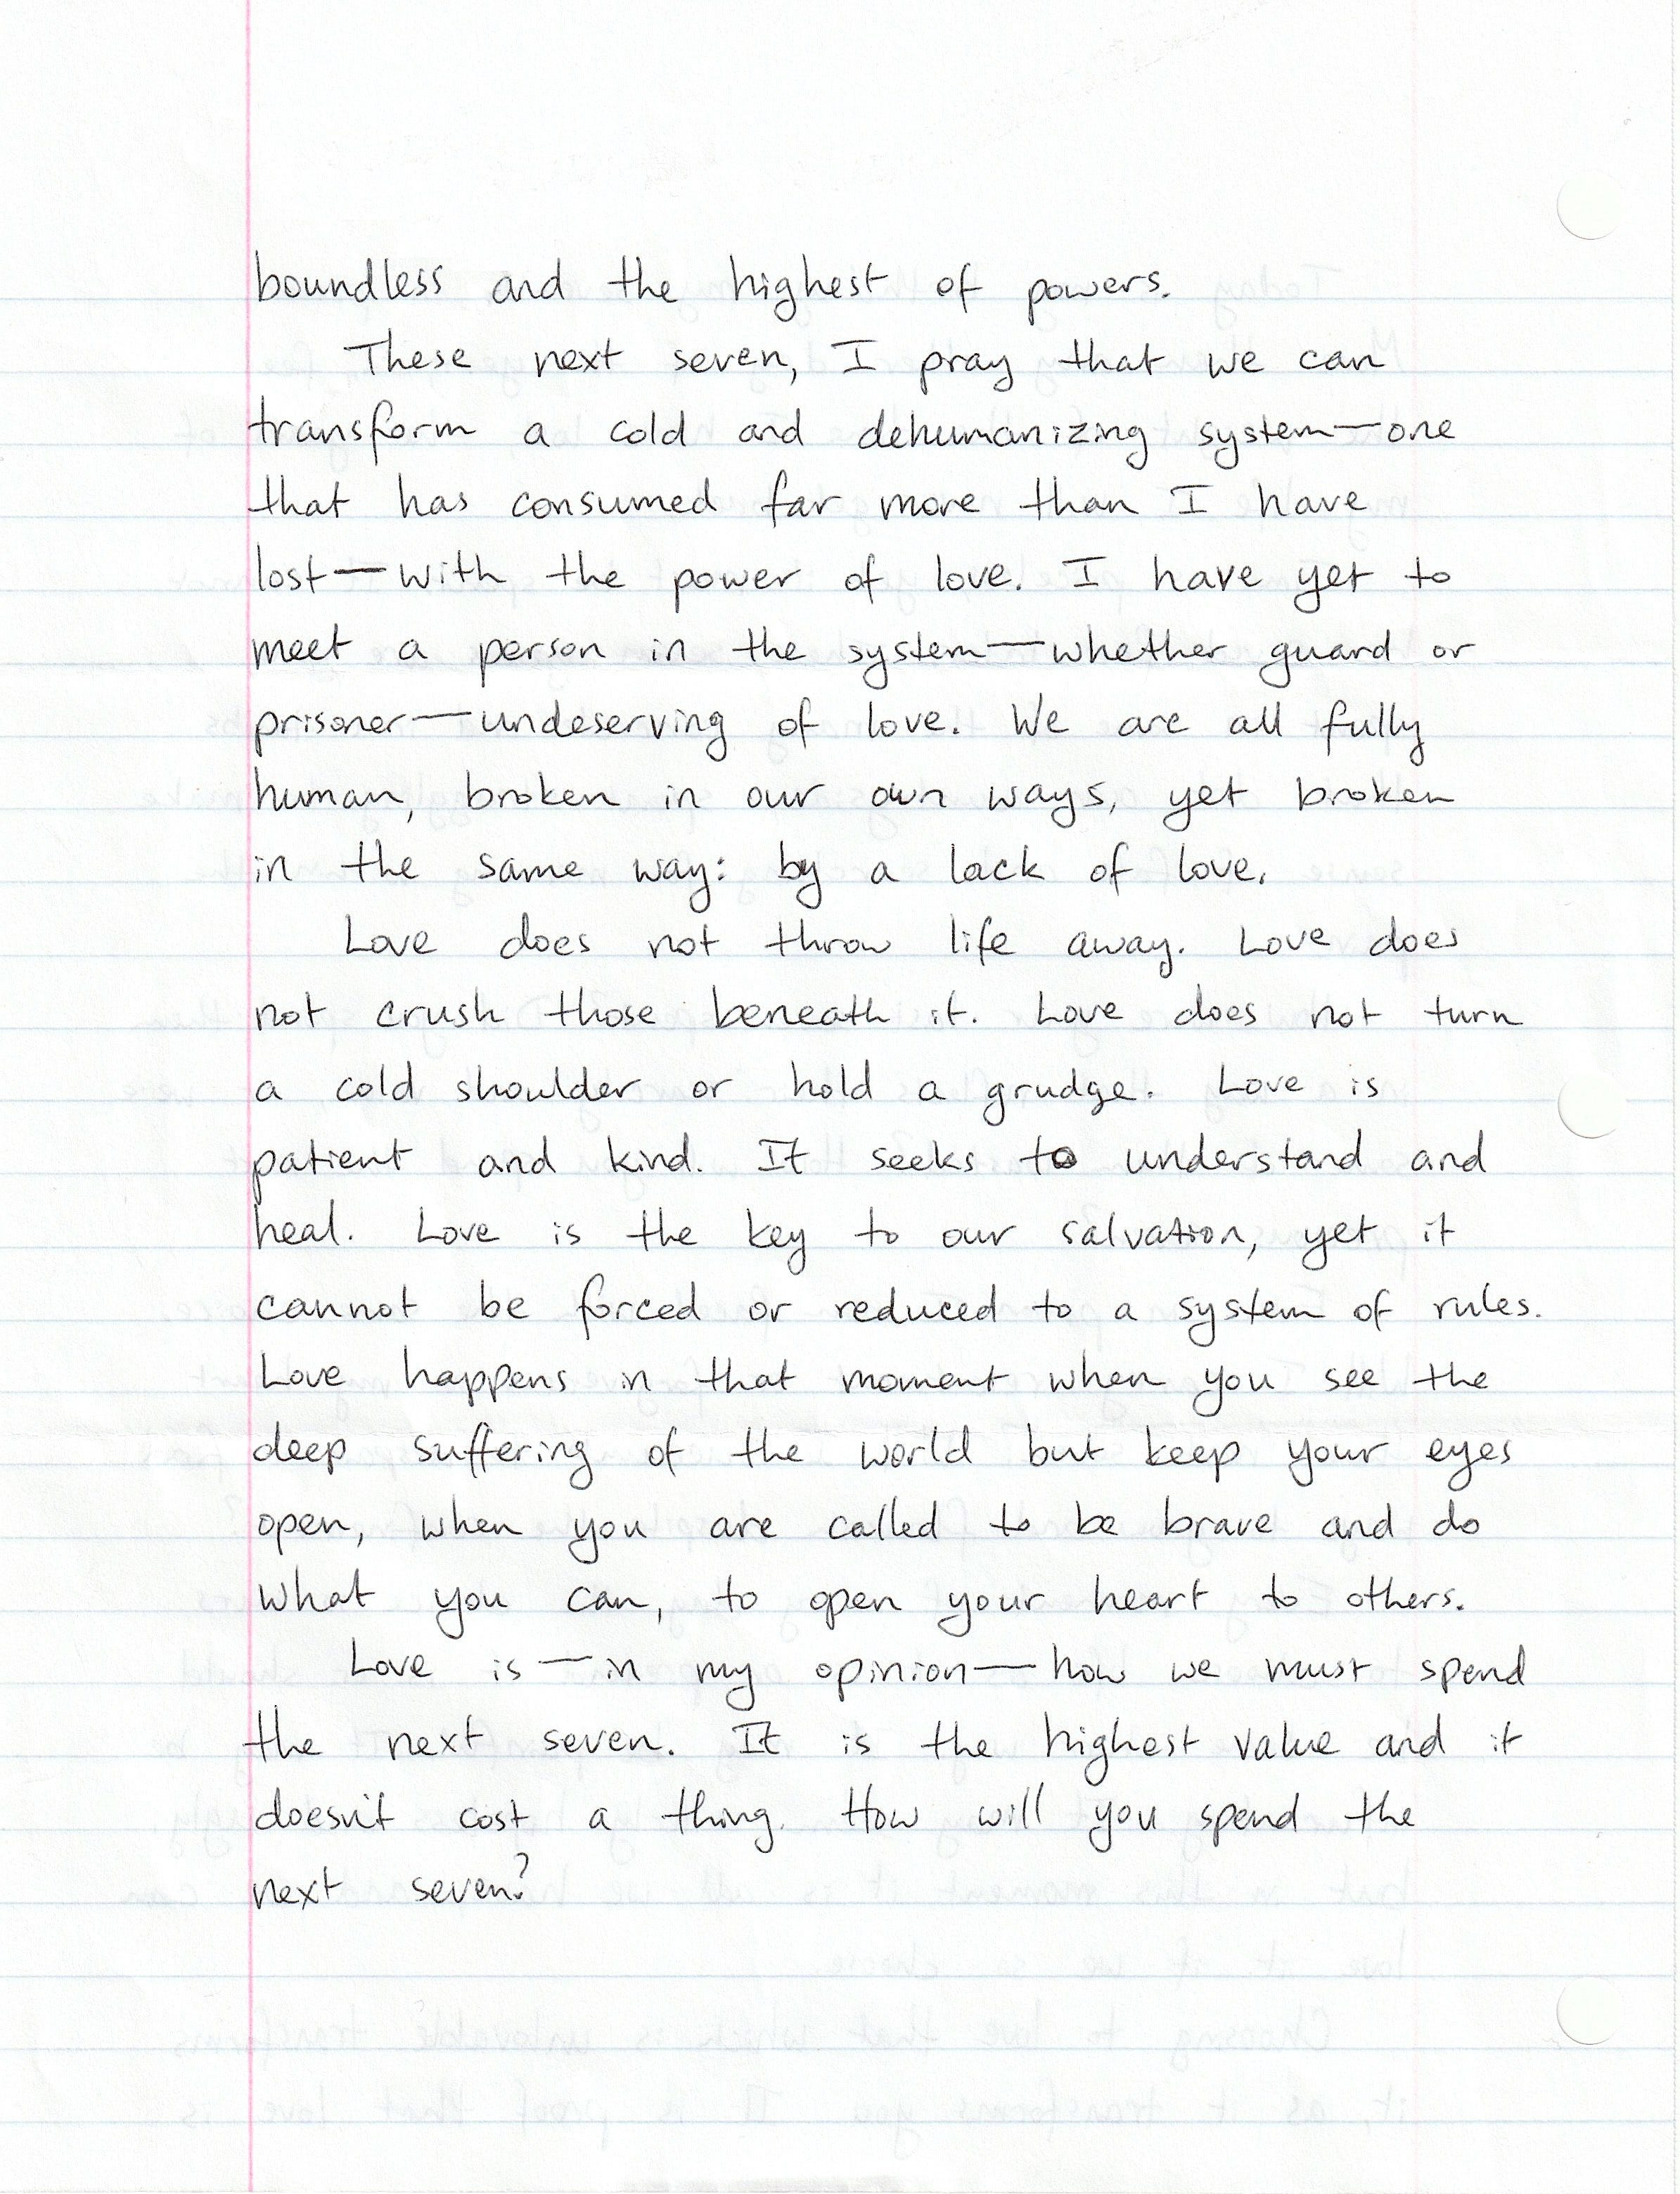 boundless and the highest of powers.
These next seven, I pray that we can
transform a cold and dehumanizing system—one
that has consumed far more than I have
lost—with the power of love. I have yet to
meet a person in the system—whether guard or
prisoner—undeserving of love. We are all fully
human, broken in our own ways, yet broken
in the same way: by a lack of love.
Love does not throw life away. Love does
not crush those beneath it. Love does not turn
a cold shoulder or hold a grudge. Love is
patient and kind. It seeks to understand and
heal. Love is the key to our salvation, yet it
cannot be forced or reduced to a system of rules.
Love happens in that moment when you see the
deep suffering of the world but keep your eyes
open, when you are called to be brave and do
what you can, to open your heart to others.
Love is—in my opinion—how we must spend
the next seven. It is the highest value and it
doesn't cost a thing. How will you spend the
next seven?